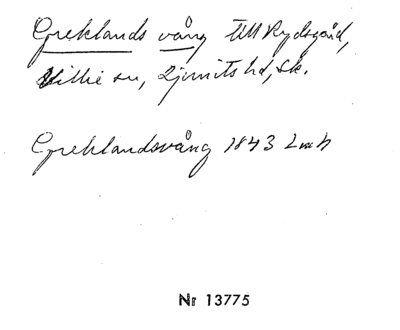 Greklands vång till Rydsgård,
Villie sn, Ljunits hd, Sk.
Greklandsvång 1843 Lmh
Nr 13775